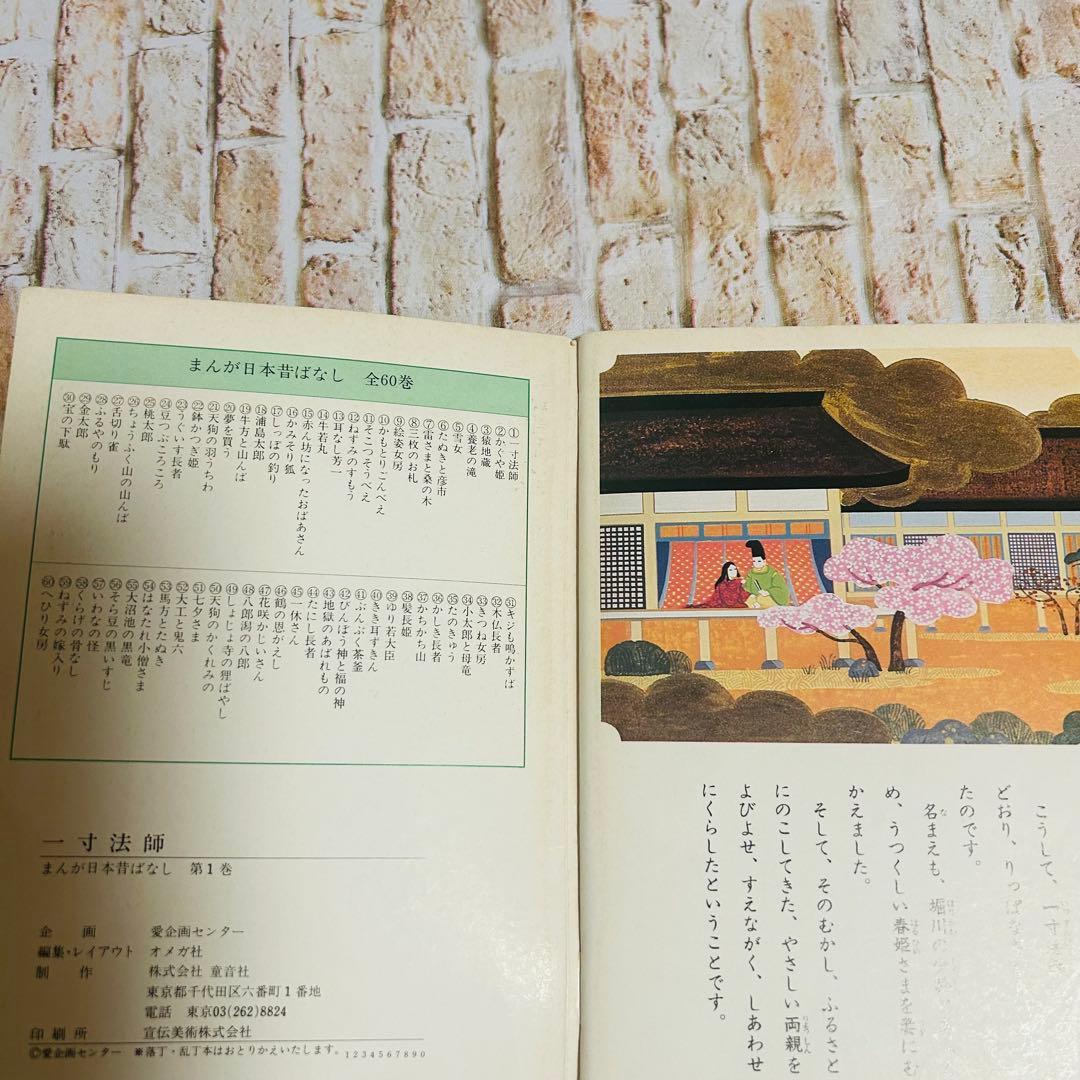 まんが日本昔ばなし 全60巻
①一寸法師
②かぐや姫
③猿地蔵
④養老の滝
⑤雪女
⑥たぬきと彦市
⑦雷さまと桑の木
⑧三枚のお札
⑨絵姿女房
⑩かもとりごんべえ
⑪そこつそうべえ
⑫ねずみのすもう
⑬耳なし芳一
⑭牛若丸
⑮赤ん坊になったおばあさん
⑯かみそり狐
⑰しっぽの釣り
⑱浦島太郎
⑲牛方と山んば
⑳夢を買う
㉑天狗の羽うちわ
㉒鉢かつぎ姫
㉓うぐいす長者
㉔豆つぶころころ
㉕桃太郎
㉖ちょうふく山の山んば
㉗舌切り雀
㉘ふるやのもり
㉙金太郎
㉚宝の下駄
㉛キジも鳴かずば
㉜木仏長者
㉝きつね女房
㉞小太郎と母竜
㉟たのきゅう
㊱かしき長者
㊲かちかち山
㊳髪長姫
㊴ゆり若大臣
㊵きき耳ずきん
㊶ぶんぶく茶釜
㊷びんぼう神と福の神
㊸地獄のあばれもの
㊹たにし長者
㊺一休さん
㊻鶴の恩がえし
㊼花咲かじいさん
㊽八郎潟の八郎
㊾しょじょ寺の狸ばやし
㊿天狗のかくれみの
51七夕さま
52大工と鬼六
53馬方とたぬき
54はなたれ小僧さま
55大沼池の黒竜
56そら豆の黒いすじ
57いわなの怪
58くらげの骨なし
59ねずみの嫁入り
60へひり女房
一寸法師
まんが日本昔ばなし 第1巻
企画 愛企画センター
編集・レイアウト オメガ社
制作 株式会社 童音社
東京都千代田区六番町1番地
電話 東京03(262)8824
印刷所 宣伝美術株式会社
©愛企画センター ※落丁・乱丁本はおとりかえいたします。 1234567890
こうして、一寸法
どおり、りっぱな
たのです。
名まえも、堀川の
め、うつくしい春姫さまを
かえました。
そして、そのむかし、ふるさと
にのこしてきた、やさしい両親を
よびよせ、すえながく、しあわせ
にくらしたということです。